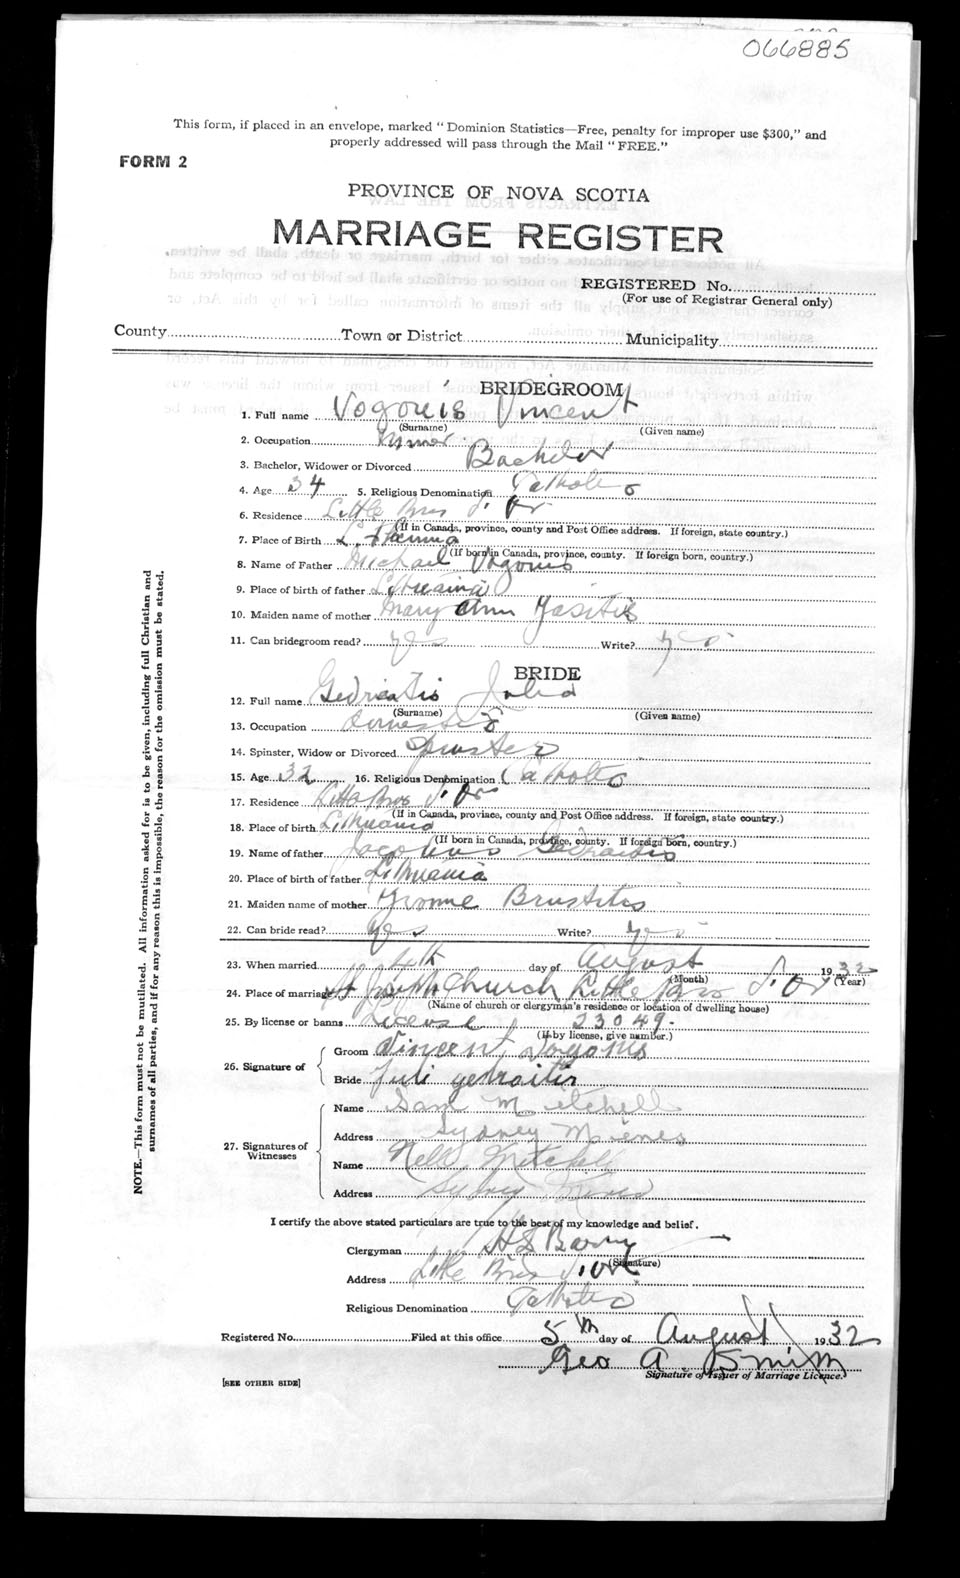 066885
This form, if placed in an envelope, marked "Dominion Statistics—Free, penalty for improper use $300," and
properly addressed will pass through the Mail "FREE."
FORM 2
PROVINCE OF NOVA SCOTIA
MARRIAGE REGISTER
REGISTERED No.
(For use of Registrar General only)
County Town or District Municipality
BRIDEGROOM
1. Full name Vogonis Vincent
(Surname) (Given name)
2. Occupation Miner
3. Bachelor, Widower or Divorced Bachelor
4. Age 34 5. Religious Denomination Catholic
6. Residence Little Bras d'Or
(If in Canada, province, county and Post Office address. If foreign, state country.)
7. Place of Birth Lithuania
(If born in Canada, province, county. If foreign born, country.)
8. Name of Father Michael Vogonis
9. Place of birth of father Lithuania
10. Maiden name of mother Mary Ann
11. Can bridegroom read? yes Write? yes
BRIDE
12. Full name Gedraitis
(Surname) (Given name)
13. Occupation Domestic
14. Spinster, Widow or Divorced Spinster
15. Age 32 16. Religious Denomination Catholic
17. Residence Little Bras d'Or
(If in Canada, province, county and Post Office address. If foreign, state country.)
18. Place of birth Lithuania
(If born in Canada, province, county. If foreign born, country.)
19. Name of father Gedraitis
20. Place of birth of father Lithuania
21. Maiden name of mother
22. Can bride read? yes Write? yes
23. When married 4th day of August 1932
(Month) (Year)
24. Place of marriage St Joseph Church Little Bras d'Or
(Name of church or clergyman's residence or location of dwelling house)
25. By license or banns License 23049.
(If by license, give number.)
26. Signature of
Groom Vincent Vogonis
Bride Juli gedraitis
27. Signatures of Witnesses
Name Sam Mitchell
Address Sydney Mines
Name Nell Mitchell
Address Sydney Mines
I certify the above stated particulars are true to the best of my knowledge and belief.
Clergyman
(Signature)
Address Little Bras d'Or
Religious Denomination Catholic
Registered No. Filed at this office 5th day of August 1932
Geo A. Smith
Signature of Issuer of Marriage Licence.
[SEE OTHER SIDE]
NOTE.—This form must not be mutilated. All information asked for is to be given, including full Christian and
surnames of all parties, and if for any reason this is impossible, the reason for the omission must be stated.